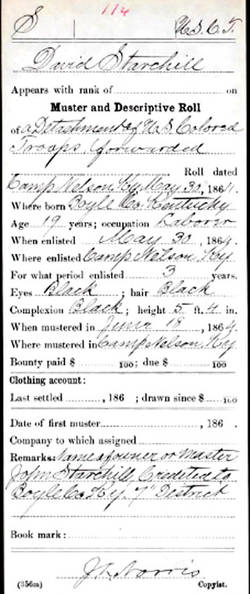 S 114 U.S.C.T.
David Starchill
Appears with rank of
Muster and Descriptive Roll
of a Detachment of U S Colored
Troops, forwarded
Roll dated
Camp Nelson Ky May 30, 1864.
Where born Boyle Co. Kentucky
Age 19 years; occupation Laborer
When enlisted May 30, 1864.
Where enlisted Camp Nelson, Ky.
For what period enlisted 3 years.
Eyes Black; hair Black
Complexion Black; height 5 ft. 4 in.
When mustered in June 18, 1864
Where mustered in Camp Nelson, Ky
Bounty paid $ 100; due $ 100
Clothing account:
Last settled , 186 ; drawn since $ 100
Date of first muster , 186
Company to which assigned
Remarks: Name of owner or Master
John Starchill Credited to
Boyle Co. Ky. 7" District
Book mark:
Norris
(356m) Copyist.